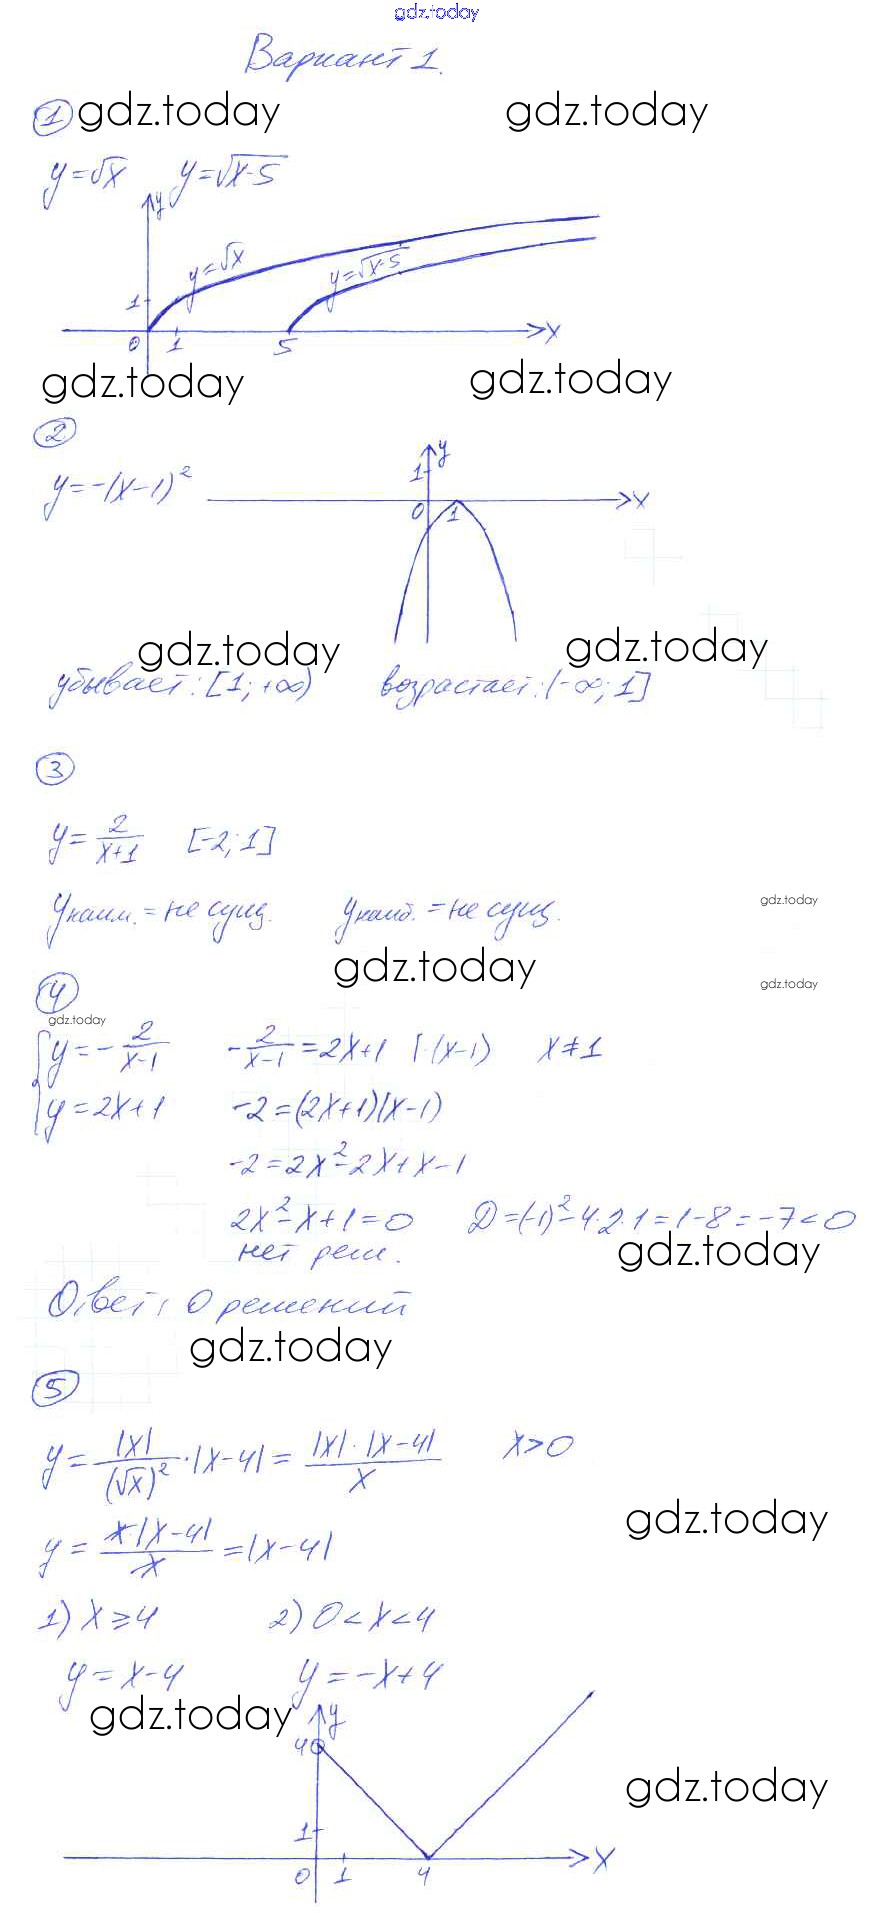 gdz.today
Вариант 1.
1 gdz.today gdz.today
y=√x y=√x-5
y
y=√x y=√x-5
1
0 1 5 x
gdz.today gdz.today
2
y=-(x-1)² y 1 x
0 1
gdz.today gdz.today
убывает: [1; +∞) возрастает: (-∞; 1]
3
y = 2/(x+1) [-2; 1]
yнаим. = не сущ. yнаиб. = не сущ.
gdz.today
gdz.today
gdz.today
4
gdz.today
{ y = - 2/(x-1) - 2/(x-1) = 2x+1 |·(x-1) x≠1
y = 2x+1 -2=(2x+1)(x-1)
-2=2x²-2x+x-1
2x²-x+1=0 D=(-1)²-4·2·1=1-8=-7<0
нет реш. gdz.today
Ответ: 0 решений
gdz.today
5
y = |x|/(√x)² · |x-4| = |x|·|x-4|/x x>0
gdz.today
y = x·|x-4|/x = |x-4|
1) x≥4 2) 0<x<4
y = x-4 y = -x+4
gdz.today y
4
gdz.today
1
0 1 4 x